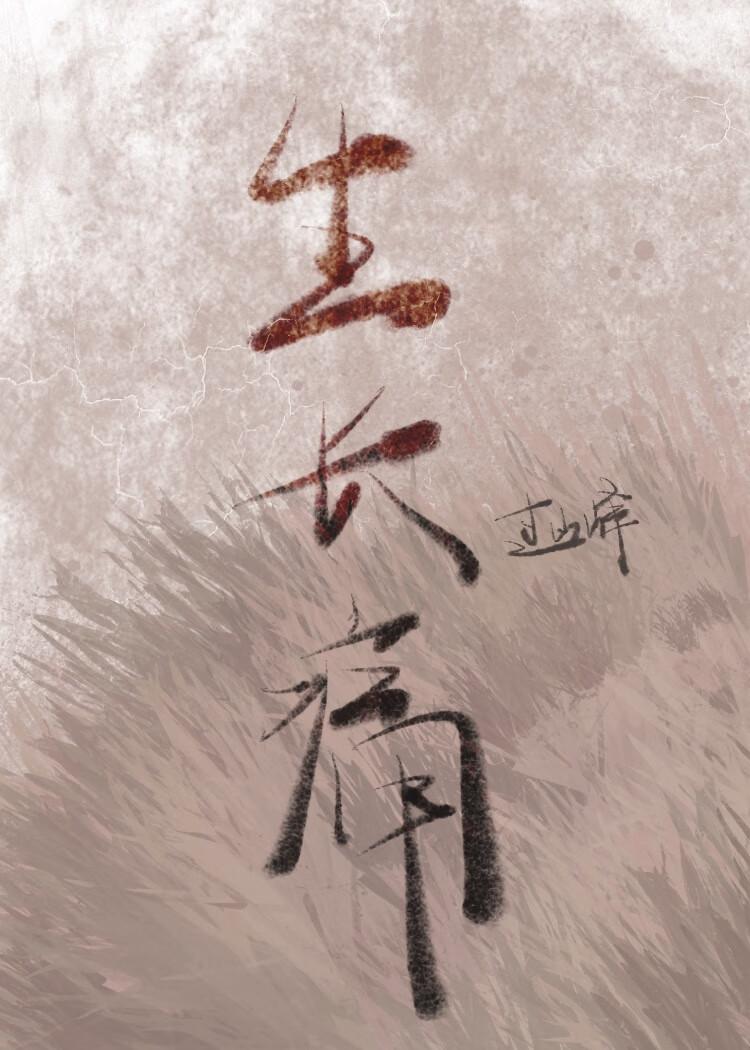 生长痛
过山峰